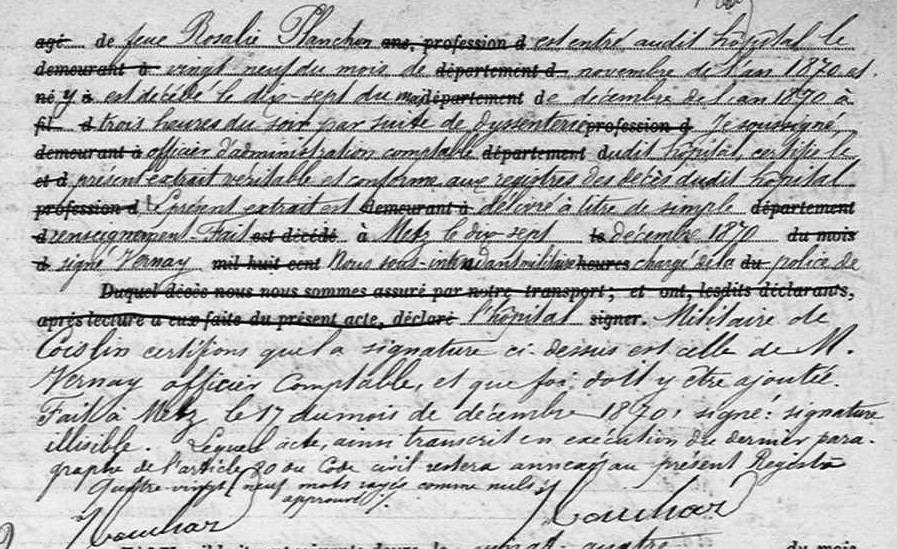 agé de feue Rosalie Planchon ans, profession d est entré audit hôpital le
demeurant à vingt neuf du mois de département d novembre de l'an 1870 et
né y à est décédé le dix-sept du mois département de décembre de l'an 1870 à
fil d trois heures du soir par suite de dyssenterie profession d Je soussigné,
demeurant à officier d'administration comptable département dudit hôpital, certifie le
et d présent extrait véritable et conforme aux registres des décès dudit hôpital
profession d Le présent extrait est demeurant à délivré à titre de simple département
d renseignement - Fait est décédé à Metz le dix sept le décembre 1870 du mois
d signé Vernay mil huit cent Nous sous-intendant militaire heures chargé de la du police de
Duquel décès nous nous sommes assuré par notre transport; et ont, lesdits déclarants,
après lecture à eux faite du présent acte, déclaré l'hôpital signer. Militaire de
Coislin certifions que la signature ci-dessus est celle de M.
Vernay officier Comptable, et que foi doit y être ajoutée.
Fait à Metz le 17 du mois de décembre 1870, signé: signature
illisible. Lequel acte, ainsi transcrit en exécution du dernier para-
graphe de l'article 80 du Code civil restera annexé au présent Registre
Quatre-vingt neuf mots rayés comme nuls
approuvé
vingt quatre du mois